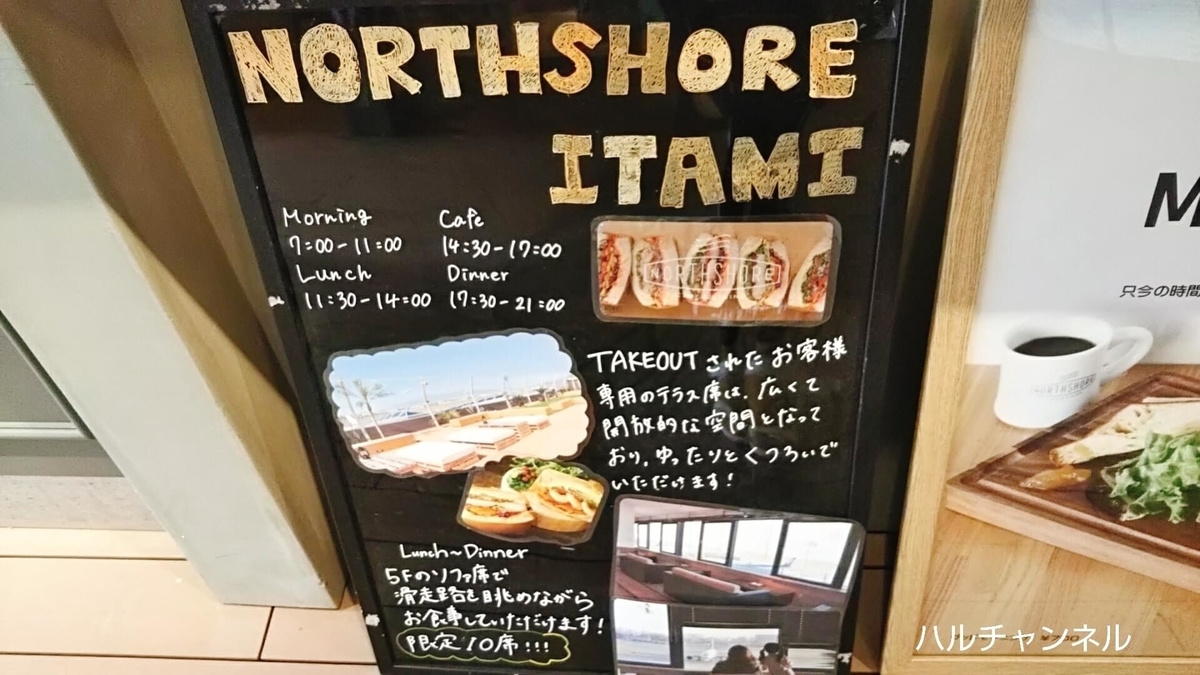 NORTHSHORE
ITAMI
Morning
7:00-11:00
Lunch
11:30-14:00
Cafe
14:30-17:00
Dinner
17:30-21:00
NORTHSHORE
TAKEOUTされたお客様
専用のテラス席は、広くて
開放的な空間となって
おり、ゆったりとくつろいで
いただけます!
Lunch~Dinner
5Fのソファ席で
滑走路を眺めながら
お食事していただけます!
限定10席!!!
M
只今の時間
NORTHSHORE
ハルチャンネル